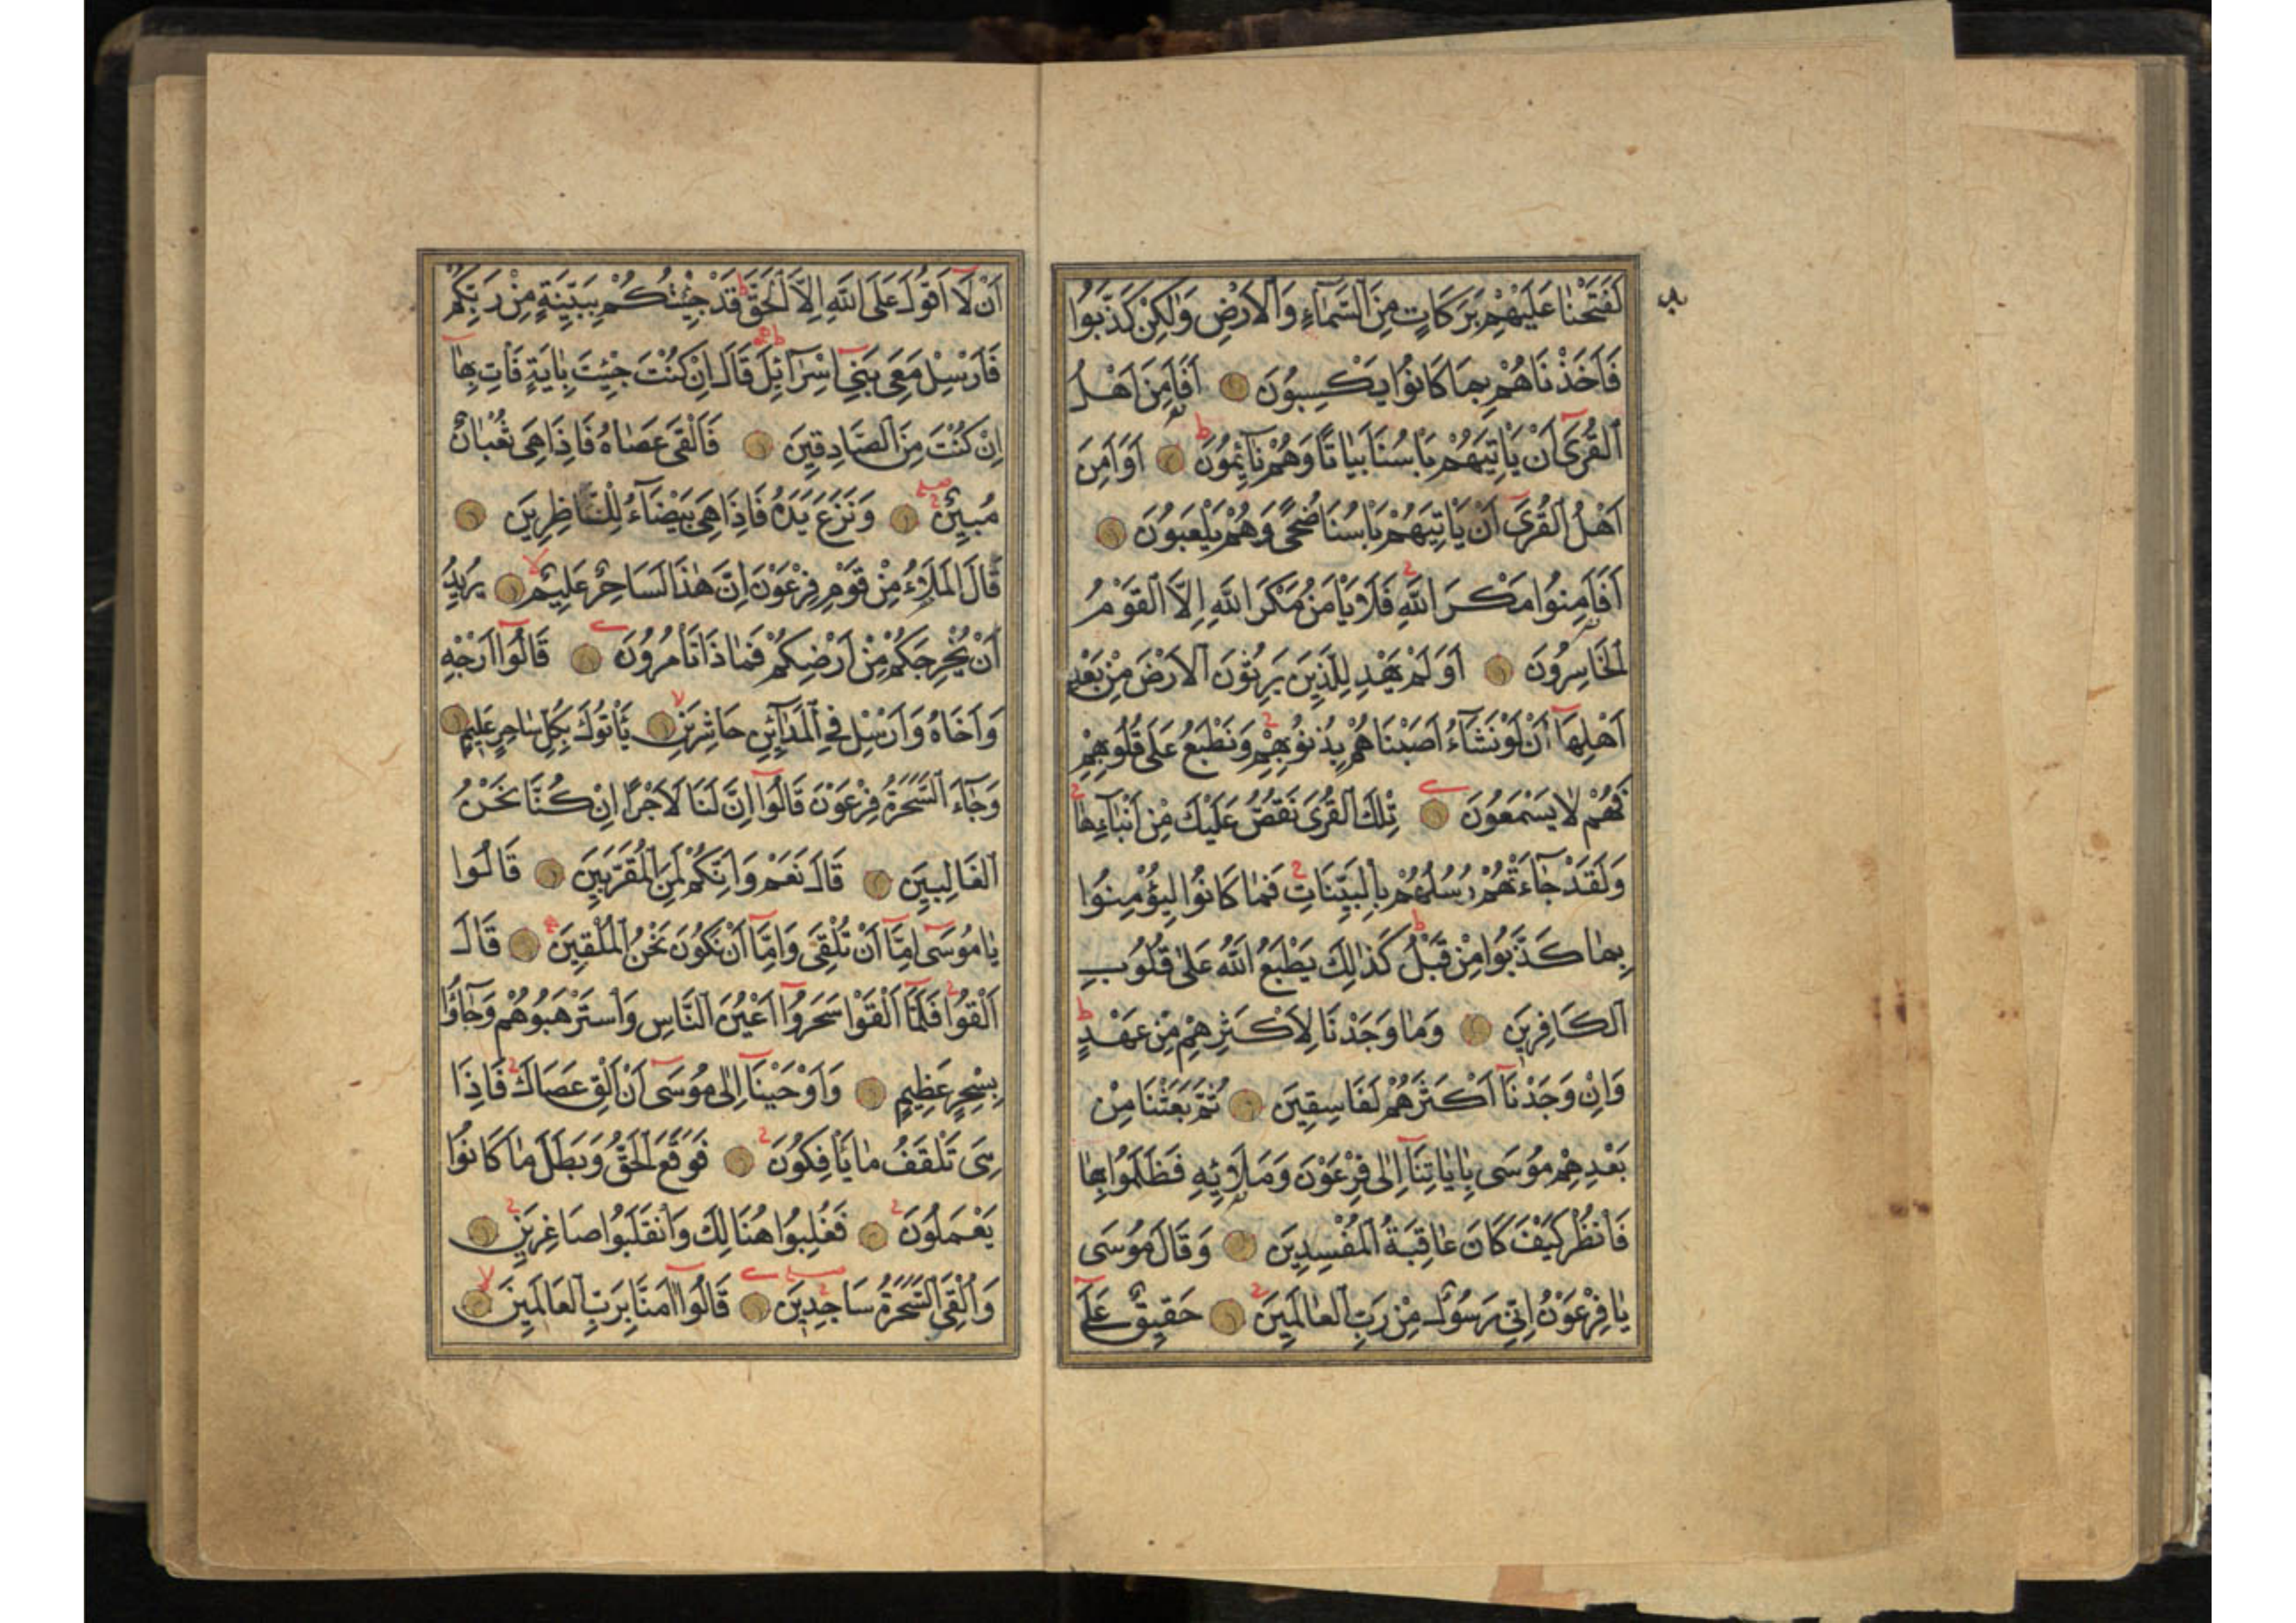 لَفَتَحْنَا عَلَيْهِمْ بَرَكَاتٍ مِنَ السَّمَاءِ وَالْاَرْضِ وَلٰكِنْ كَذَّبُوا
فَاَخَذْنَاهُمْ بِمَا كَانُوا يَكْسِبُونَ اَفَاَمِنَ اَهْلُ
الْقُرَى اَنْ يَأْتِيَهُمْ بَأْسُنَا بَيَاتًا وَهُمْ نَآئِمُونَ اَوَاَمِنَ
اَهْلُ الْقُرَى اَنْ يَأْتِيَهُمْ بَأْسُنَا ضُحًى وَهُمْ يَلْعَبُونَ
اَفَاَمِنُوا مَكْرَ اللّٰهِ فَلَا يَأْمَنُ مَكْرَ اللّٰهِ اِلَّا الْقَوْمُ
الْخَاسِرُونَ اَوَلَمْ يَهْدِ لِلَّذِينَ يَرِثُونَ الْاَرْضَ مِنْ بَعْدِ
اَهْلِهَا اَنْ لَوْ نَشَآءُ اَصَبْنَاهُمْ بِذُنُوبِهِمْ وَنَطْبَعُ عَلَى قُلُوبِهِمْ
فَهُمْ لَا يَسْمَعُونَ تِلْكَ الْقُرَى نَقُصُّ عَلَيْكَ مِنْ اَنْبَآئِهَا
وَلَقَدْ جَاءَتْهُمْ رُسُلُهُمْ بِالْبَيِّنَاتِ فَمَا كَانُوا لِيُؤْمِنُوا
بِمَا كَذَّبُوا مِنْ قَبْلُ كَذٰلِكَ يَطْبَعُ اللّٰهُ عَلٰى قُلُوبِ
الْكَافِرِينَ وَمَا وَجَدْنَا لِاَكْثَرِهِمْ مِنْ عَهْدٍ
وَاِنْ وَجَدْنَا اَكْثَرَهُمْ لَفَاسِقِينَ ثُمَّ بَعَثْنَا مِنْ
بَعْدِهِمْ مُوسَى بِاٰيَاتِنَا اِلٰى فِرْعَوْنَ وَمَلَائِهِ فَظَلَمُوا بِهَا
فَانْظُرْ كَيْفَ كَانَ عَاقِبَةُ الْمُفْسِدِينَ وَقَالَ مُوسَى
يَا فِرْعَوْنُ اِنِّي رَسُولٌ مِنْ رَبِّ الْعَالَمِينَ حَقِيقٌ عَلٰٓى
اَنْ لَا اَقُولَ عَلَى اللّٰهِ اِلَّا الْحَقَّ قَدْ جِئْتُكُمْ بِبَيِّنَةٍ مِنْ رَبِّكُمْ
فَاَرْسِلْ مَعِيَ بَنِي اِسْرَآئِلَ قَالَ اِنْ كُنْتَ جِئْتَ بِاٰيَةٍ فَأْتِ بِهَا
اِنْ كُنْتَ مِنَ الصَّادِقِينَ فَاَلْقَى عَصَاهُ فَاِذَا هِيَ ثُعْبَانٌ
مُبِينٌ وَنَزَعَ يَدَهُ فَاِذَا هِيَ بَيْضَآءُ لِلنَّاظِرِينَ
قَالَ الْمَلَاءُ مِنْ قَوْمِ فِرْعَوْنَ اِنَّ هٰذَا لَسَاحِرٌ عَلِيمٌ يُرِيدُ
اَنْ يُخْرِجَكُمْ مِنْ اَرْضِكُمْ فَمَاذَا تَأْمُرُونَ قَالُوا اَرْجِهِ
وَاَخَاهُ وَاَرْسِلْ فِي الْمَدَآئِنِ حَاشِرِينَ يَأْتُوكَ بِكُلِّ سَاحِرٍ عَلِيمٍ
وَجَآءَ السَّحَرَةُ فِرْعَوْنَ قَالُوا اِنَّ لَنَا لَاَجْرًا اِنْ كُنَّا نَحْنُ
الْغَالِبِينَ قَالَ نَعَمْ وَاِنَّكُمْ لَمِنَ الْمُقَرَّبِينَ قَالُوا
يَا مُوسَى اِمَّا اَنْ تُلْقِيَ وَاِمَّا اَنْ نَكُونَ نَحْنُ الْمُلْقِينَ قَالَ
اَلْقُوا فَلَمَّا اَلْقَوْا سَحَرُوا اَعْيُنَ النَّاسِ وَاسْتَرْهَبُوهُمْ وَجَآؤُا
بِسِحْرٍ عَظِيمٍ وَاَوْحَيْنَا اِلٰى مُوسَى اَنْ اَلْقِ عَصَاكَ فَاِذَا
هِيَ تَلْقَفُ مَا يَأْفِكُونَ فَوَقَعَ الْحَقُّ وَبَطَلَ مَا كَانُوا
يَعْمَلُونَ فَغُلِبُوا هُنَالِكَ وَانْقَلَبُوا صَاغِرِينَ
وَاُلْقِيَ السَّحَرَةُ سَاجِدِينَ قَالُوا اٰمَنَّا بِرَبِّ الْعَالَمِينَ